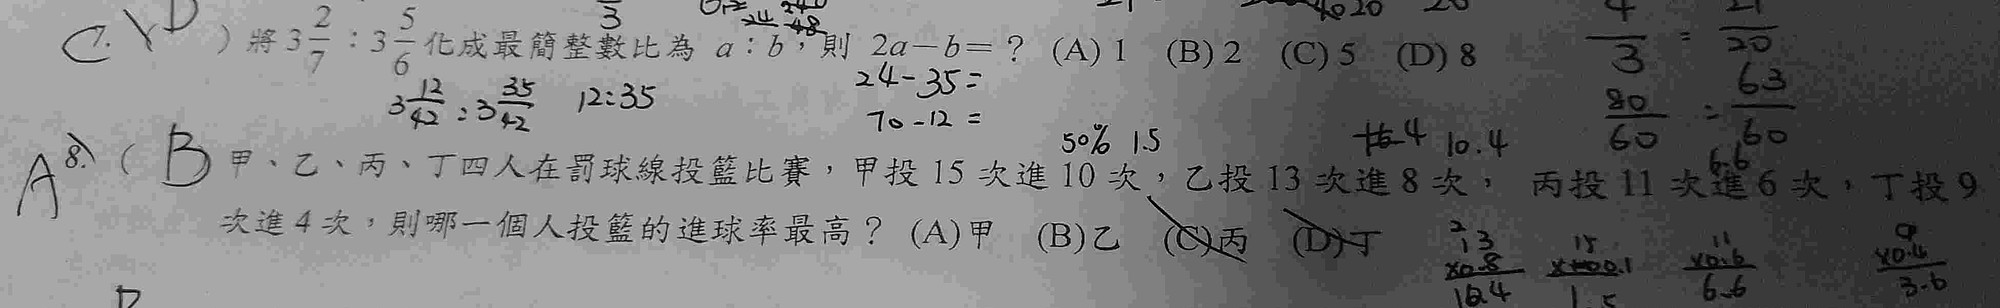 C 7. ( D ) 將 3 2/7 : 3 5/6 化成最簡整數比為 a:b，則 2a-b=？ (A) 1 (B) 2 (C) 5 (D) 8
3 12/42 : 3 35/42 12:35 24-35=
70-12=
4/3 = 21/20
80/60 = 63/60
50% 1.5 10.4 6.6
A 8. ( B 甲、乙、丙、丁四人在罰球線投籃比賽，甲投 15 次進 10 次，乙投 13 次進 8 次， 丙投 11 次進 6 次，丁投 9
次進 4 次，則哪一個人投籃的進球率最高？ (A)甲 (B)乙 (C)丙 (D)丁
13 15 11 9
x0.8 x0.1 x0.6 x0.4
10.4 1.5 6.6 3.6